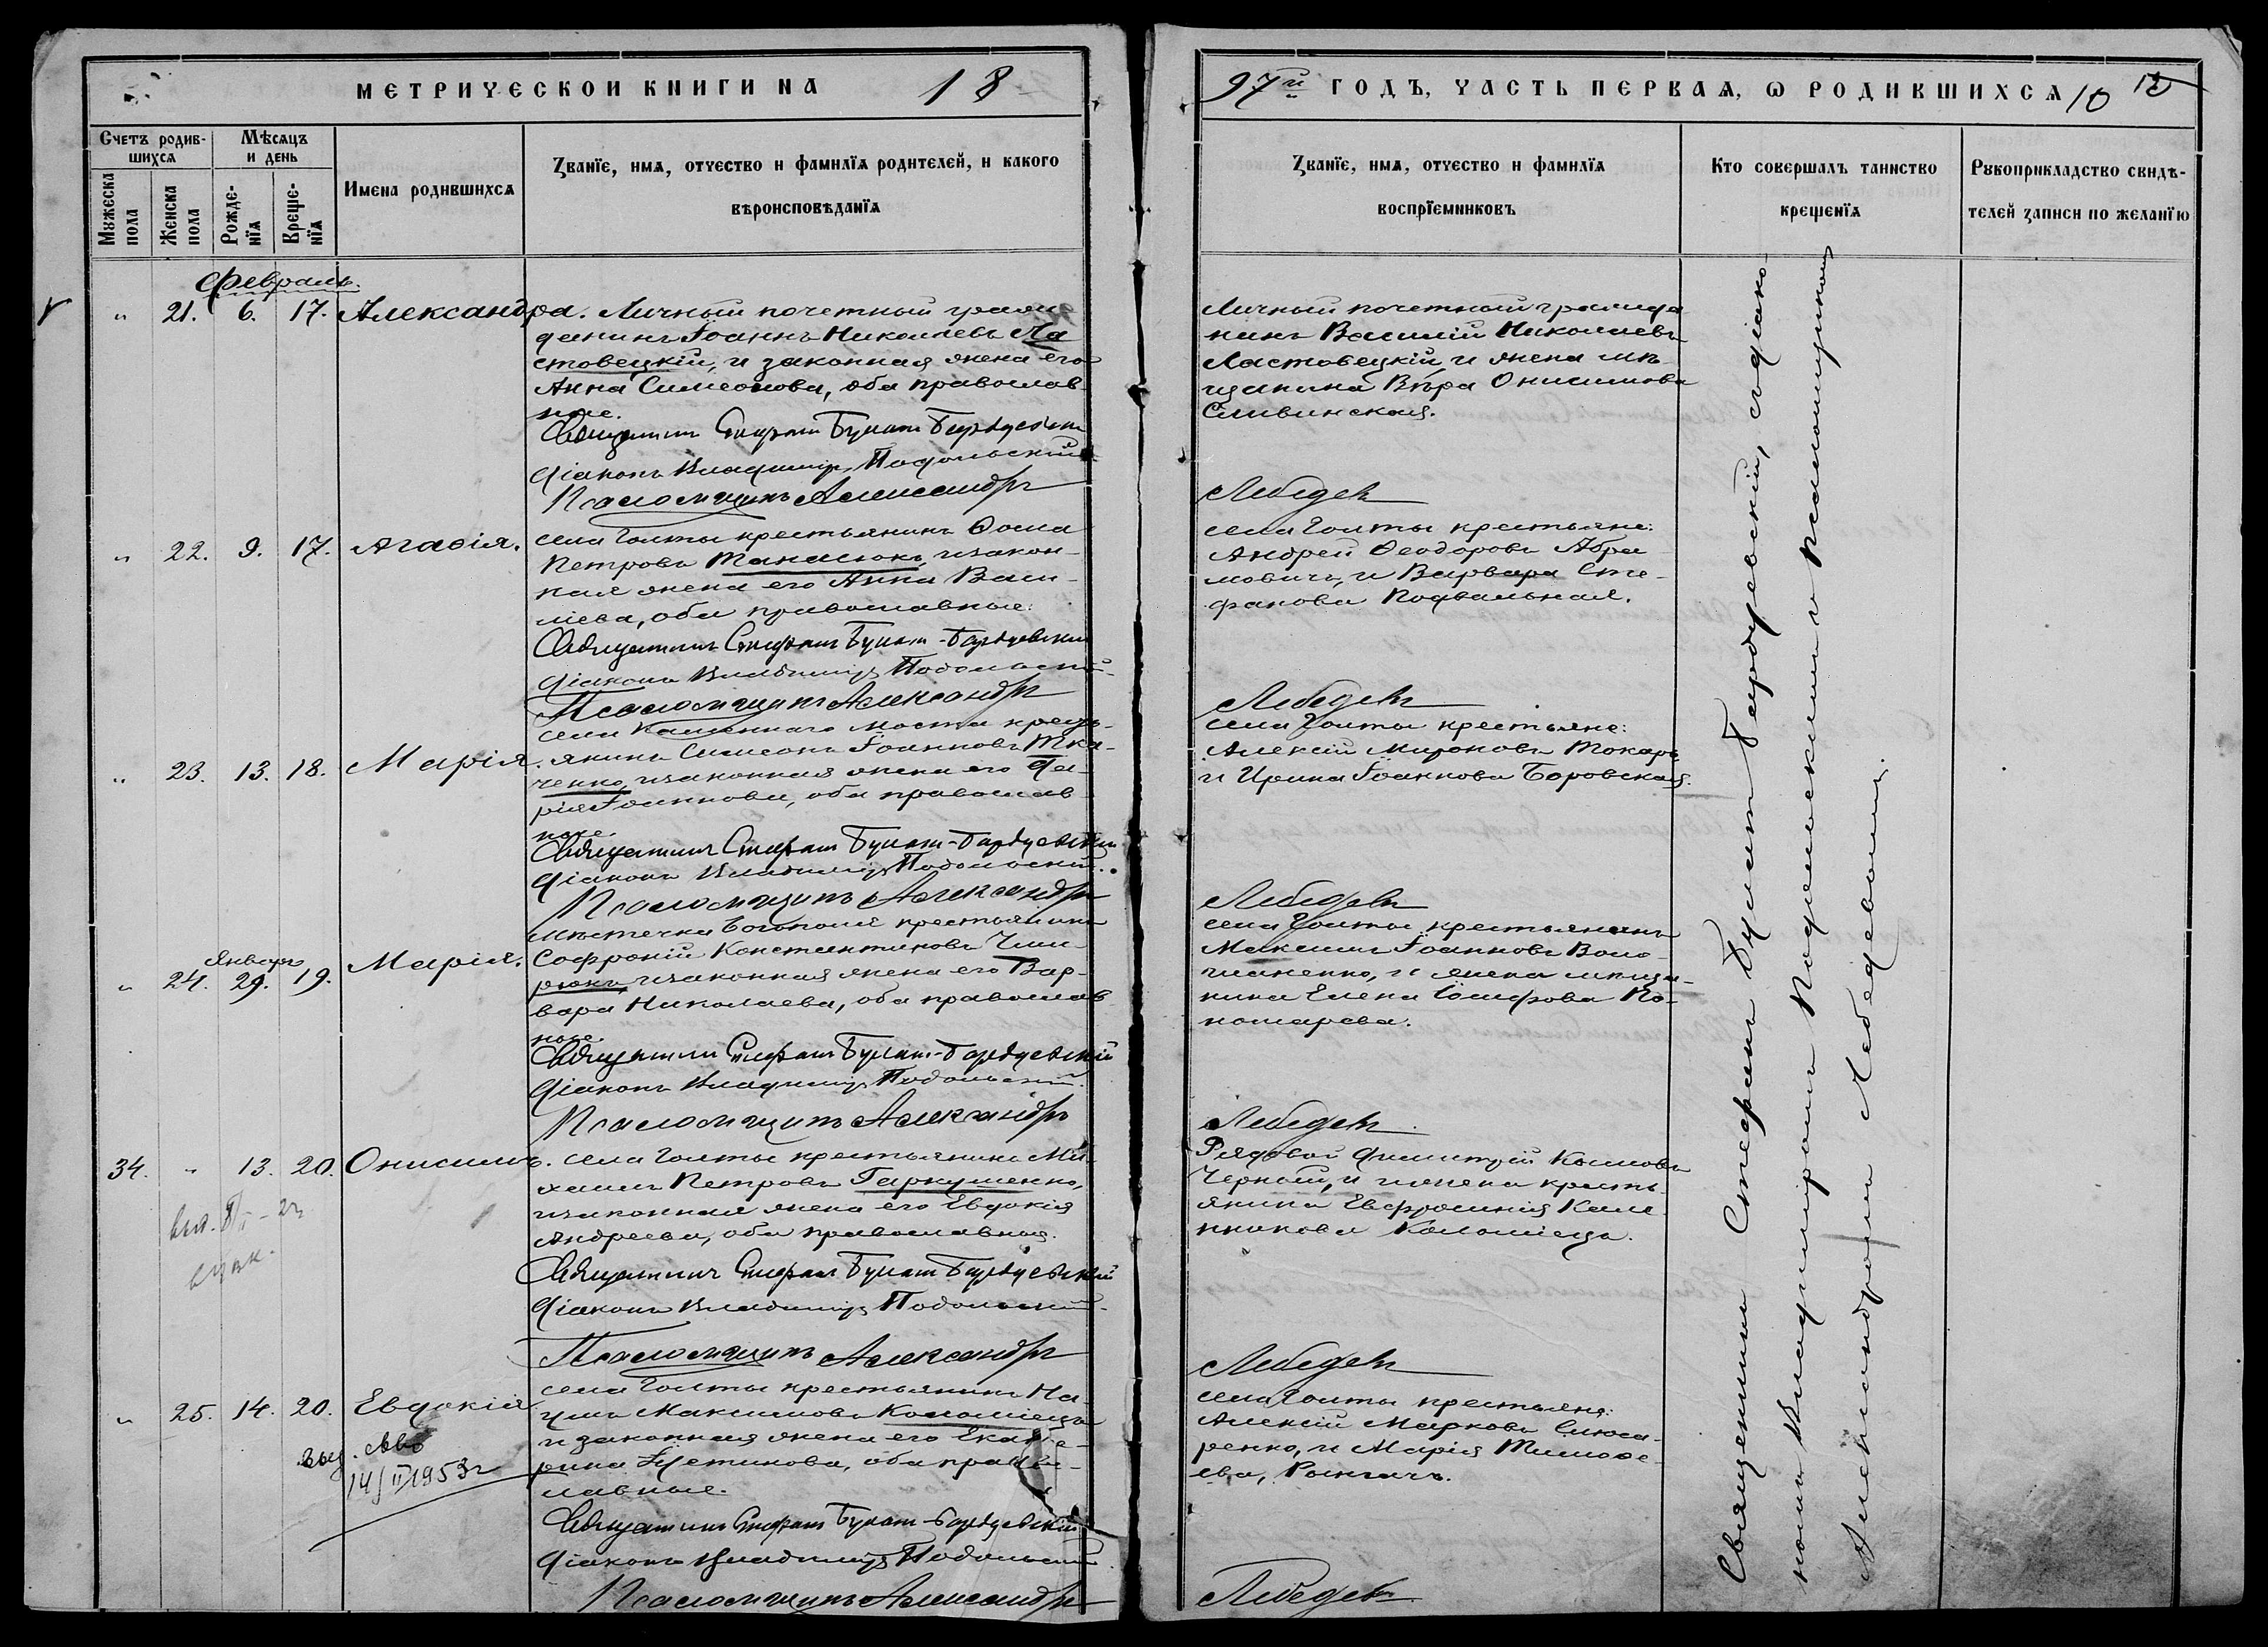 МЕТРИЧЕСКОЙ КНИГИ НА 18
97й ГОДЪ, ЧАСТЬ ПЕРВАЯ, Ѡ РОДИВШИХСЯ 10
Счетъ родив-
шихся
Мѣсяцъ
и день
Мужеска
пола
Женска
пола
Рожде-
нїя
Креще-
нїя
Имена родившихся
Званїе, имя, отчество и фамилїя родителей, и какого
вѣроисповѣданїя
Званїе, имя, отчество и фамилїя
воспрїемниковъ
Кто совершалъ таинство
крещенїя
Рукоприкладство свидѣ-
телей записи по желанїю
Февраль.
" 21. 6. 17. Александра.
Личный почетный граж
данинъ Іоаннъ Николаевъ Ла
стовецкій, и законная жена его
Анна Симеонова, оба православ-
ные.
Священникъ Стефанъ Булатъ Бардуевскій
Діаконъ Владиміръ Подольскій
Псаломщикъ Александръ Лебедевъ
Личный почетный гражда
нинъ Василій Николаевъ
Ластовецкій, и жена мѣ-
щанина Вѣра Онисимова
Сливинская.
" 22. 9. 17. Агафія.
села Голты крестьянинъ Ѳома
Петровъ Танасюкъ, и закон-
ная жена его Анна Васи-
ліева, оба православные.
Священникъ Стефанъ Булатъ-Бардуевскій
Діаконъ Владиміръ Подольскій
Псаломщикъ Александръ Лебедевъ
села Голты крестьяне:
Андрей Ѳеодоровъ Абра-
мовичъ, и Варвара Сте-
фанова Подвальная.
" 23. 13. 18. Марія.
села Каменнаго Моста кресть-
янинъ Симеонъ Іоанновъ Тка-
ченко, и законная жена его Да-
рія Іоаннова, оба православ-
ные.
Священникъ Стефанъ Булатъ-Бардуевскій
Діаконъ Владиміръ Подольскій
Псаломщикъ Александръ Лебедевъ
села Голты крестьяне:
Алексій Мироновъ Токарь
и Ирина Іоаннова Боровская.
Январь
" 24. 29. 19. Марія.
Мѣстечка Богополя крестьянинъ
Софроній Константиновъ
рюкъ, и законная жена его Вар-
вара Николаева, оба православ-
ные.
Священникъ Стефанъ Булатъ-Бардуевскій
Діаконъ Владиміръ Подольскій
Псаломщикъ Александръ Лебедевъ
села Голты крестьянинъ
Максимъ Іоанновъ Воло-
шаненко, и жена мѣща-
нина Елена Іосифова По-
номарева.
34. " 13. 20. Онисимъ.
села Голты крестьянинъ Ми-
хаилъ Петровъ Гаркушенко,
и законная жена его Евдокія
Андреева, оба православныя.
Священникъ Стефанъ Булатъ Бардуевскій
Діаконъ Владиміръ Подольскій
Псаломщикъ Александръ Лебедевъ
Рядовой Димитрій
Черный, и жена кресть
янина Евфросинія
Коломіецъ.
" 25. 14. 20. Евдокія
выд.
14/II 1953г
села Голты крестьянинъ На-
умъ Максимовъ Коломіецъ
и законная жена его Екате-
рина Іустинова, оба правос-
лавные.
Священникъ Стефанъ Булатъ-Бардуевскій
Діаконъ Владиміръ Подольскій
Псаломщикъ Александръ Лебедевъ
села Голты крестьяне:
Алексій Марковъ Слюса-
ренко, и Марія Тимофе-
ева
Священникъ Стефанъ Булатъ Бардуевскій, съ діако-
номъ Владиміромъ Подольскимъ и псаломщикомъ
Александромъ Лебедевымъ.